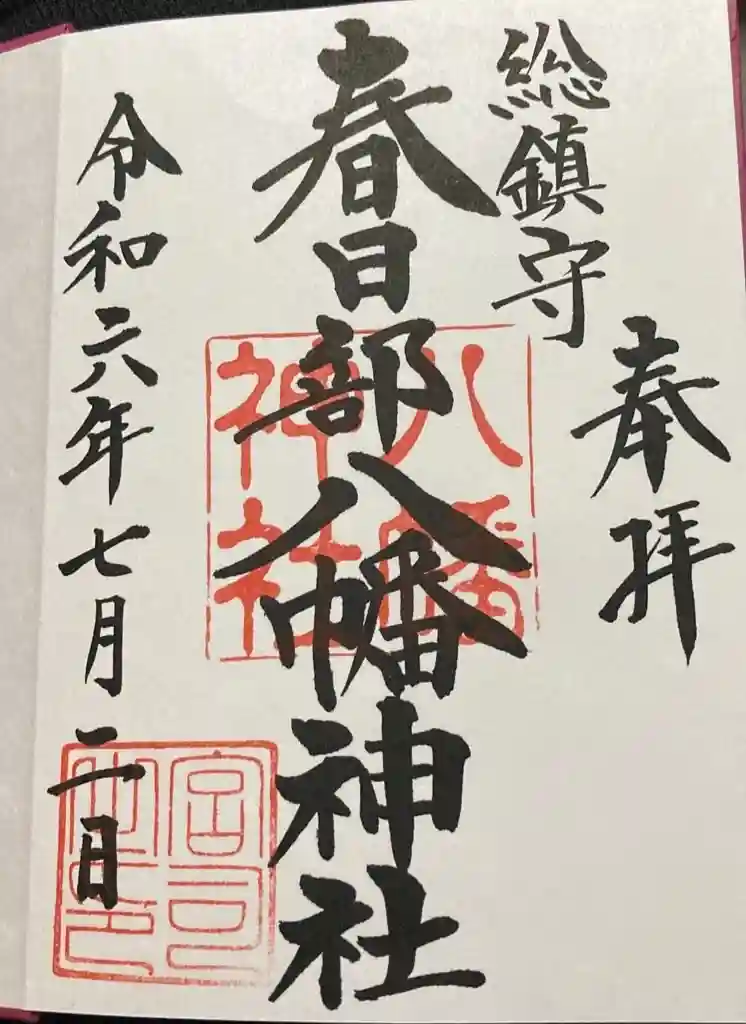 奉拝
総鎮守
春日部八幡神社
令和六年七月二日
八幡神社
宮司之印